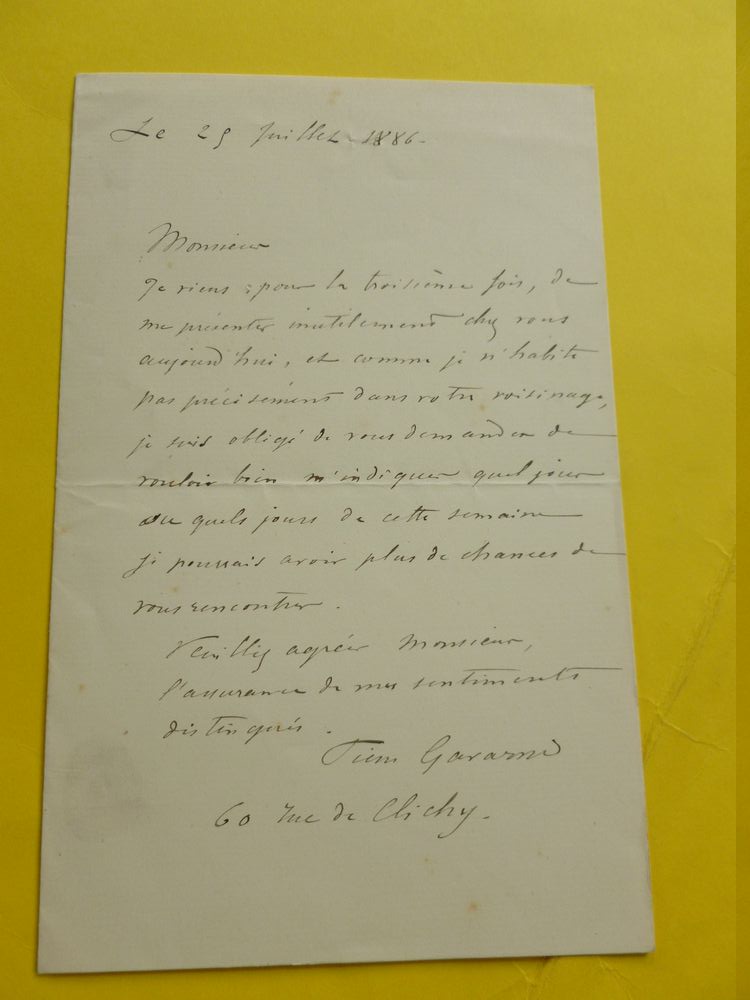 Le 25 Juillet 1886-
Monsieur
Je viens, pour la troisième fois, de
me présenter inutilement chez vous
aujourd'hui, et comme je n'habite
pas précisément dans votre voisinage,
je suis obligé de vous demander de
vouloir bien m'indiquer quel jour
ou quels jours de cette semaine
je pourrais avoir plus de chances de
vous rencontrer.
Veuillez agréer Monsieur,
l'assurance de mes sentiments
distingués.
Pierre Gavarni
60 rue de Clichy.